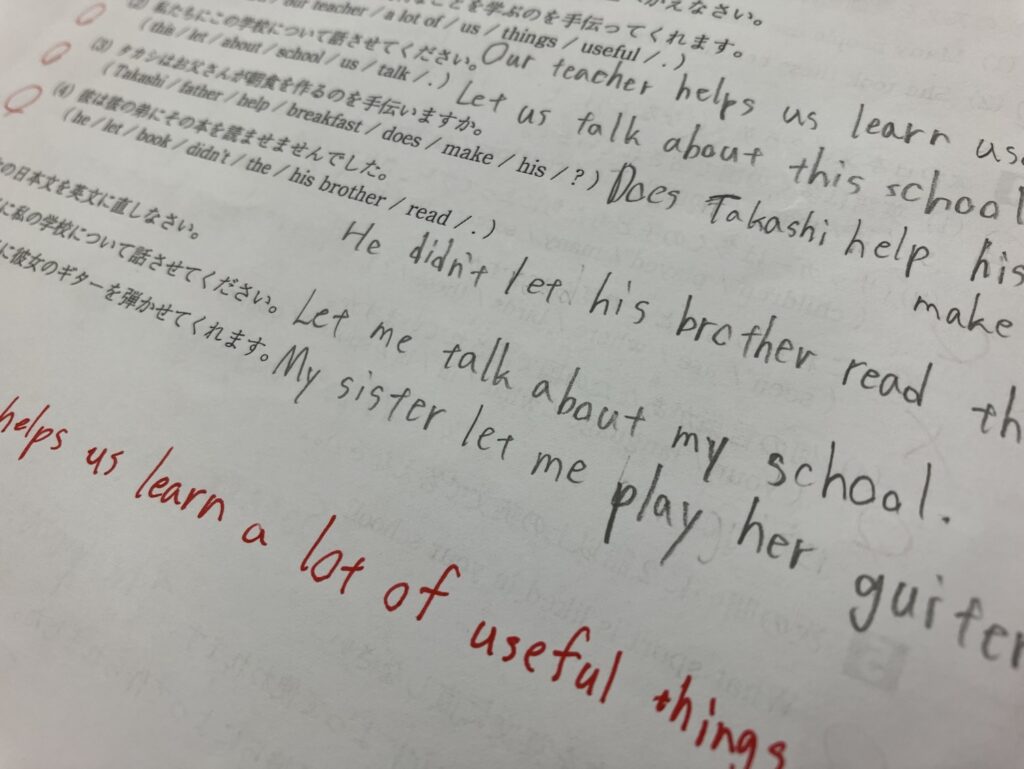 えなさい。
ことを学ぶのを手伝ってくれます。
our teacher / a lot of / us / things / useful / . )
Our teacher helps us learn
(2) 私たちにこの学校について話させてください。
( this / let / about / school / us / talk / . )
Let us talk about this school
(3) タカシはお父さんが朝食を作るのを手伝いますか。
( Takashi / father / help / breakfast / does / make / his / ? )
Does Takashi help his
make
(4) 彼は彼の弟にその本を読ませませんでした。
( he / let / book / didn't / the / his brother / read / . )
He didn't let his brother read
の日本文を英文に直しなさい。
に私の学校について話させてください。
Let me talk about my school.
に彼女のギターを弾かせてくれます。
My sister let me play her guiter
helps us learn a lot of useful things